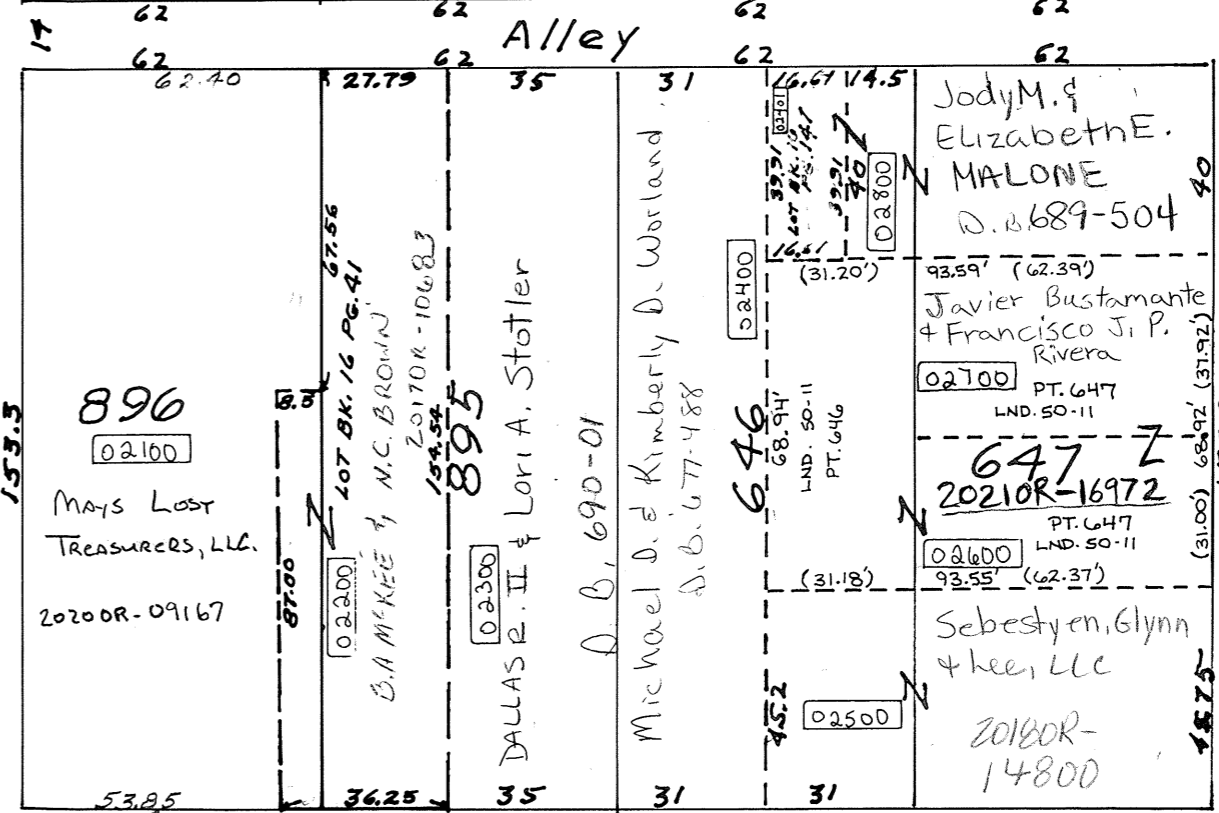 62 62 62 62
17
Alley
62 62 62 62
62.40
27.79
35
31
16.61
14.5
153.3
896
02100
MAYS LOST
TREASURERS, LLC.
2020OR-09167
53.85
8.5
87.00
67.56
LOT BK. 16 PG. 41
B.A McKEE & N.C. BROWN
2017OR-10683
02200
154.54
36.25
895
DALLAS R. II & Lori A. Stotler
D.B. 690-01
02300
35
Michael D. & Kimberly D. Worland
D.B. 677-488
02400
31
646
02401
39.91
LOT BK. 16
PG. 141
39.91
40
16.61
02800
(31.20')
68.94'
LND. 50-11
PT. 646
(31.18')
45.2
02500
31
Jody M. &
Elizabeth E.
MALONE
D.B 689-504
40
93.59' (62.39')
Javier Bustamante
& Francisco J. P.
Rivera
02700
PT. 647
LND. 50-11
(37.92')
68.92'
647
2021OR-16972
PT. 647
LND. 50-11
02600
(31.00')
93.55' (62.37')
Sebestyen, Glynn
& Lee, LLC
2018OR-
14800